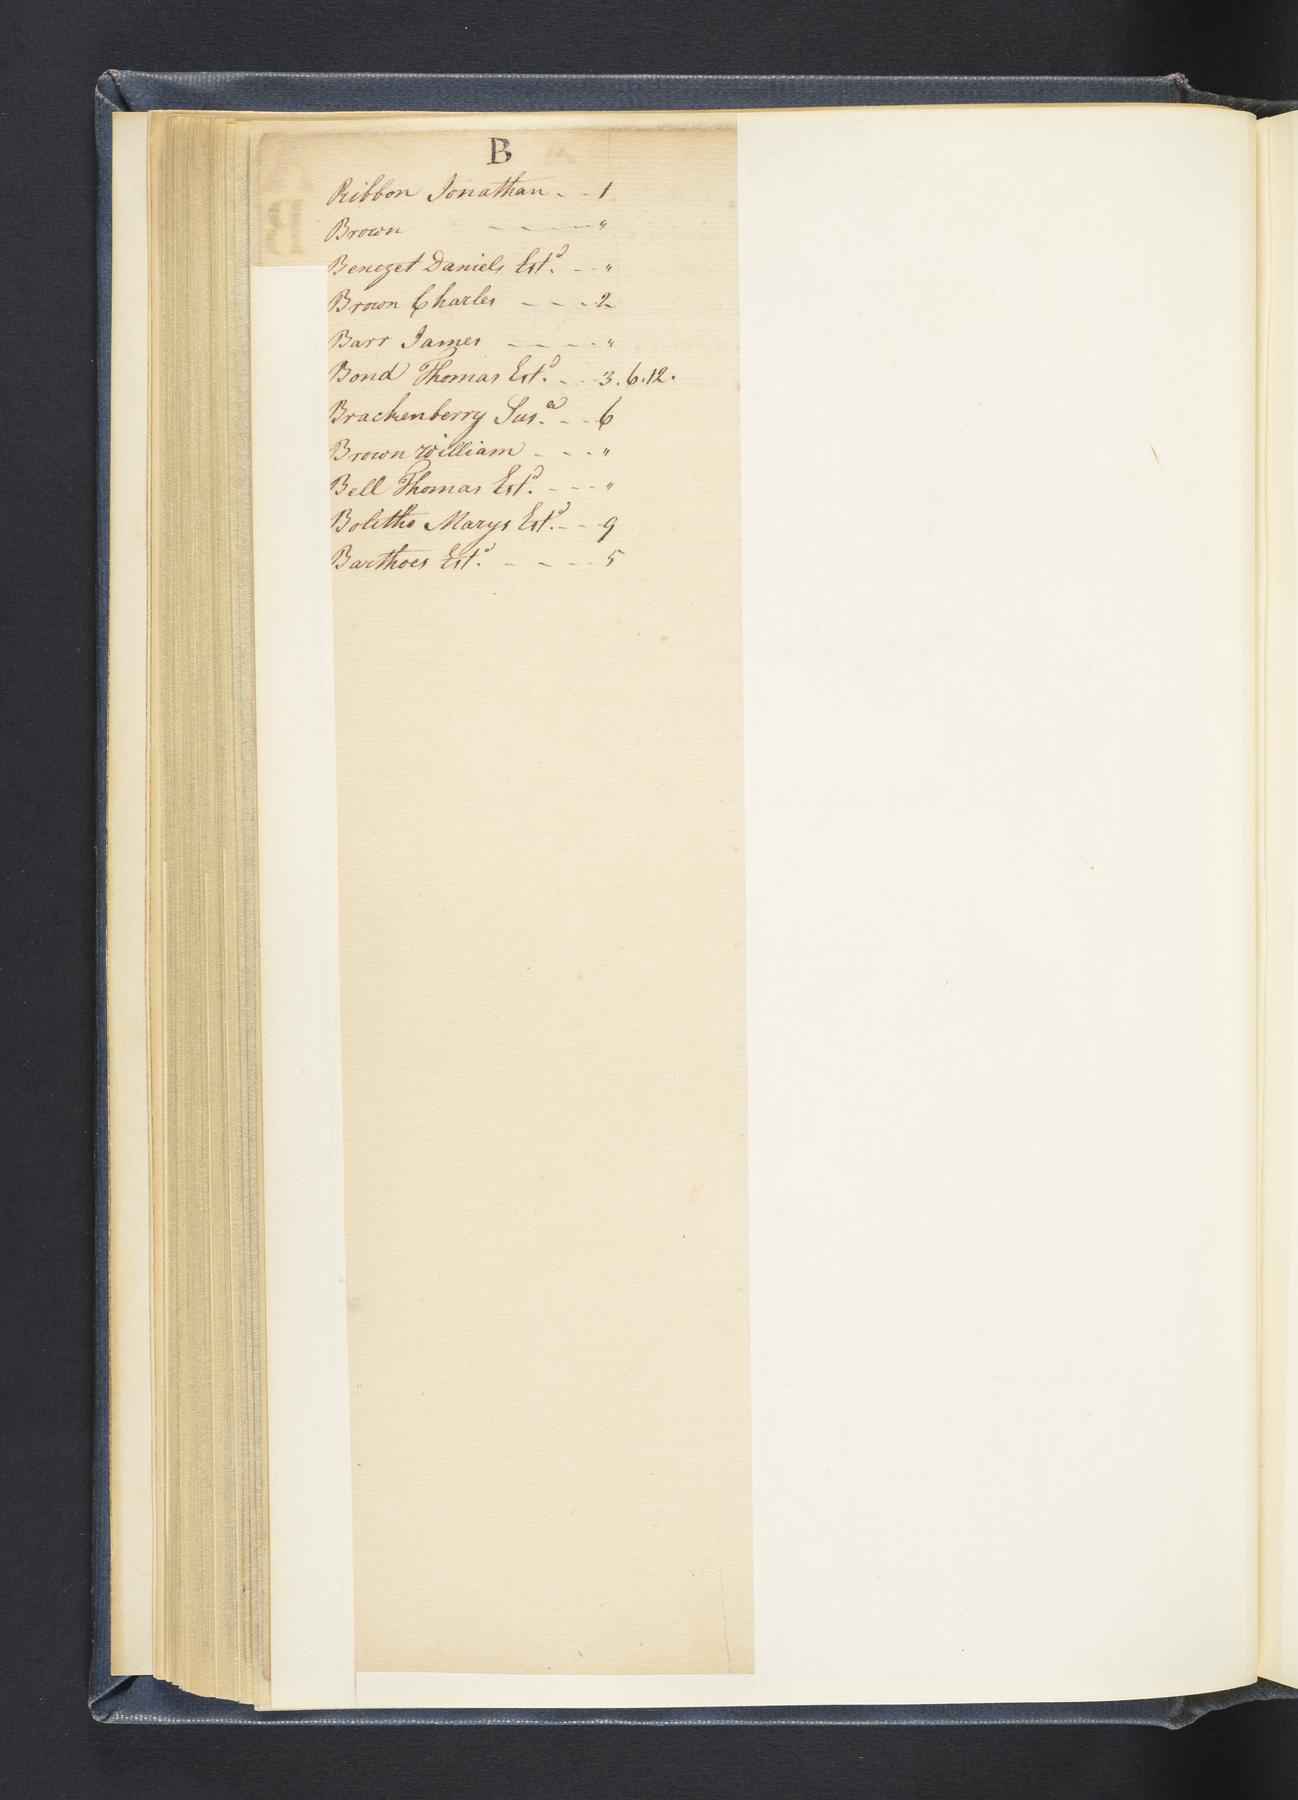 B
Ribbon Jonathan - - 1
Brown - - - - "
Benezet Daniels Estd. - - "
Brown Charles - - - 2
Barr James - - - - "
Bond Thomas Estd. - - 3.6.12.
Brackenberry Susa. - - 6
Brown William - - - "
Bell Thomas Estd. - - - "
Bolitho Marys Estd. - - 9
Barthoes Estd. - - - - 5
B